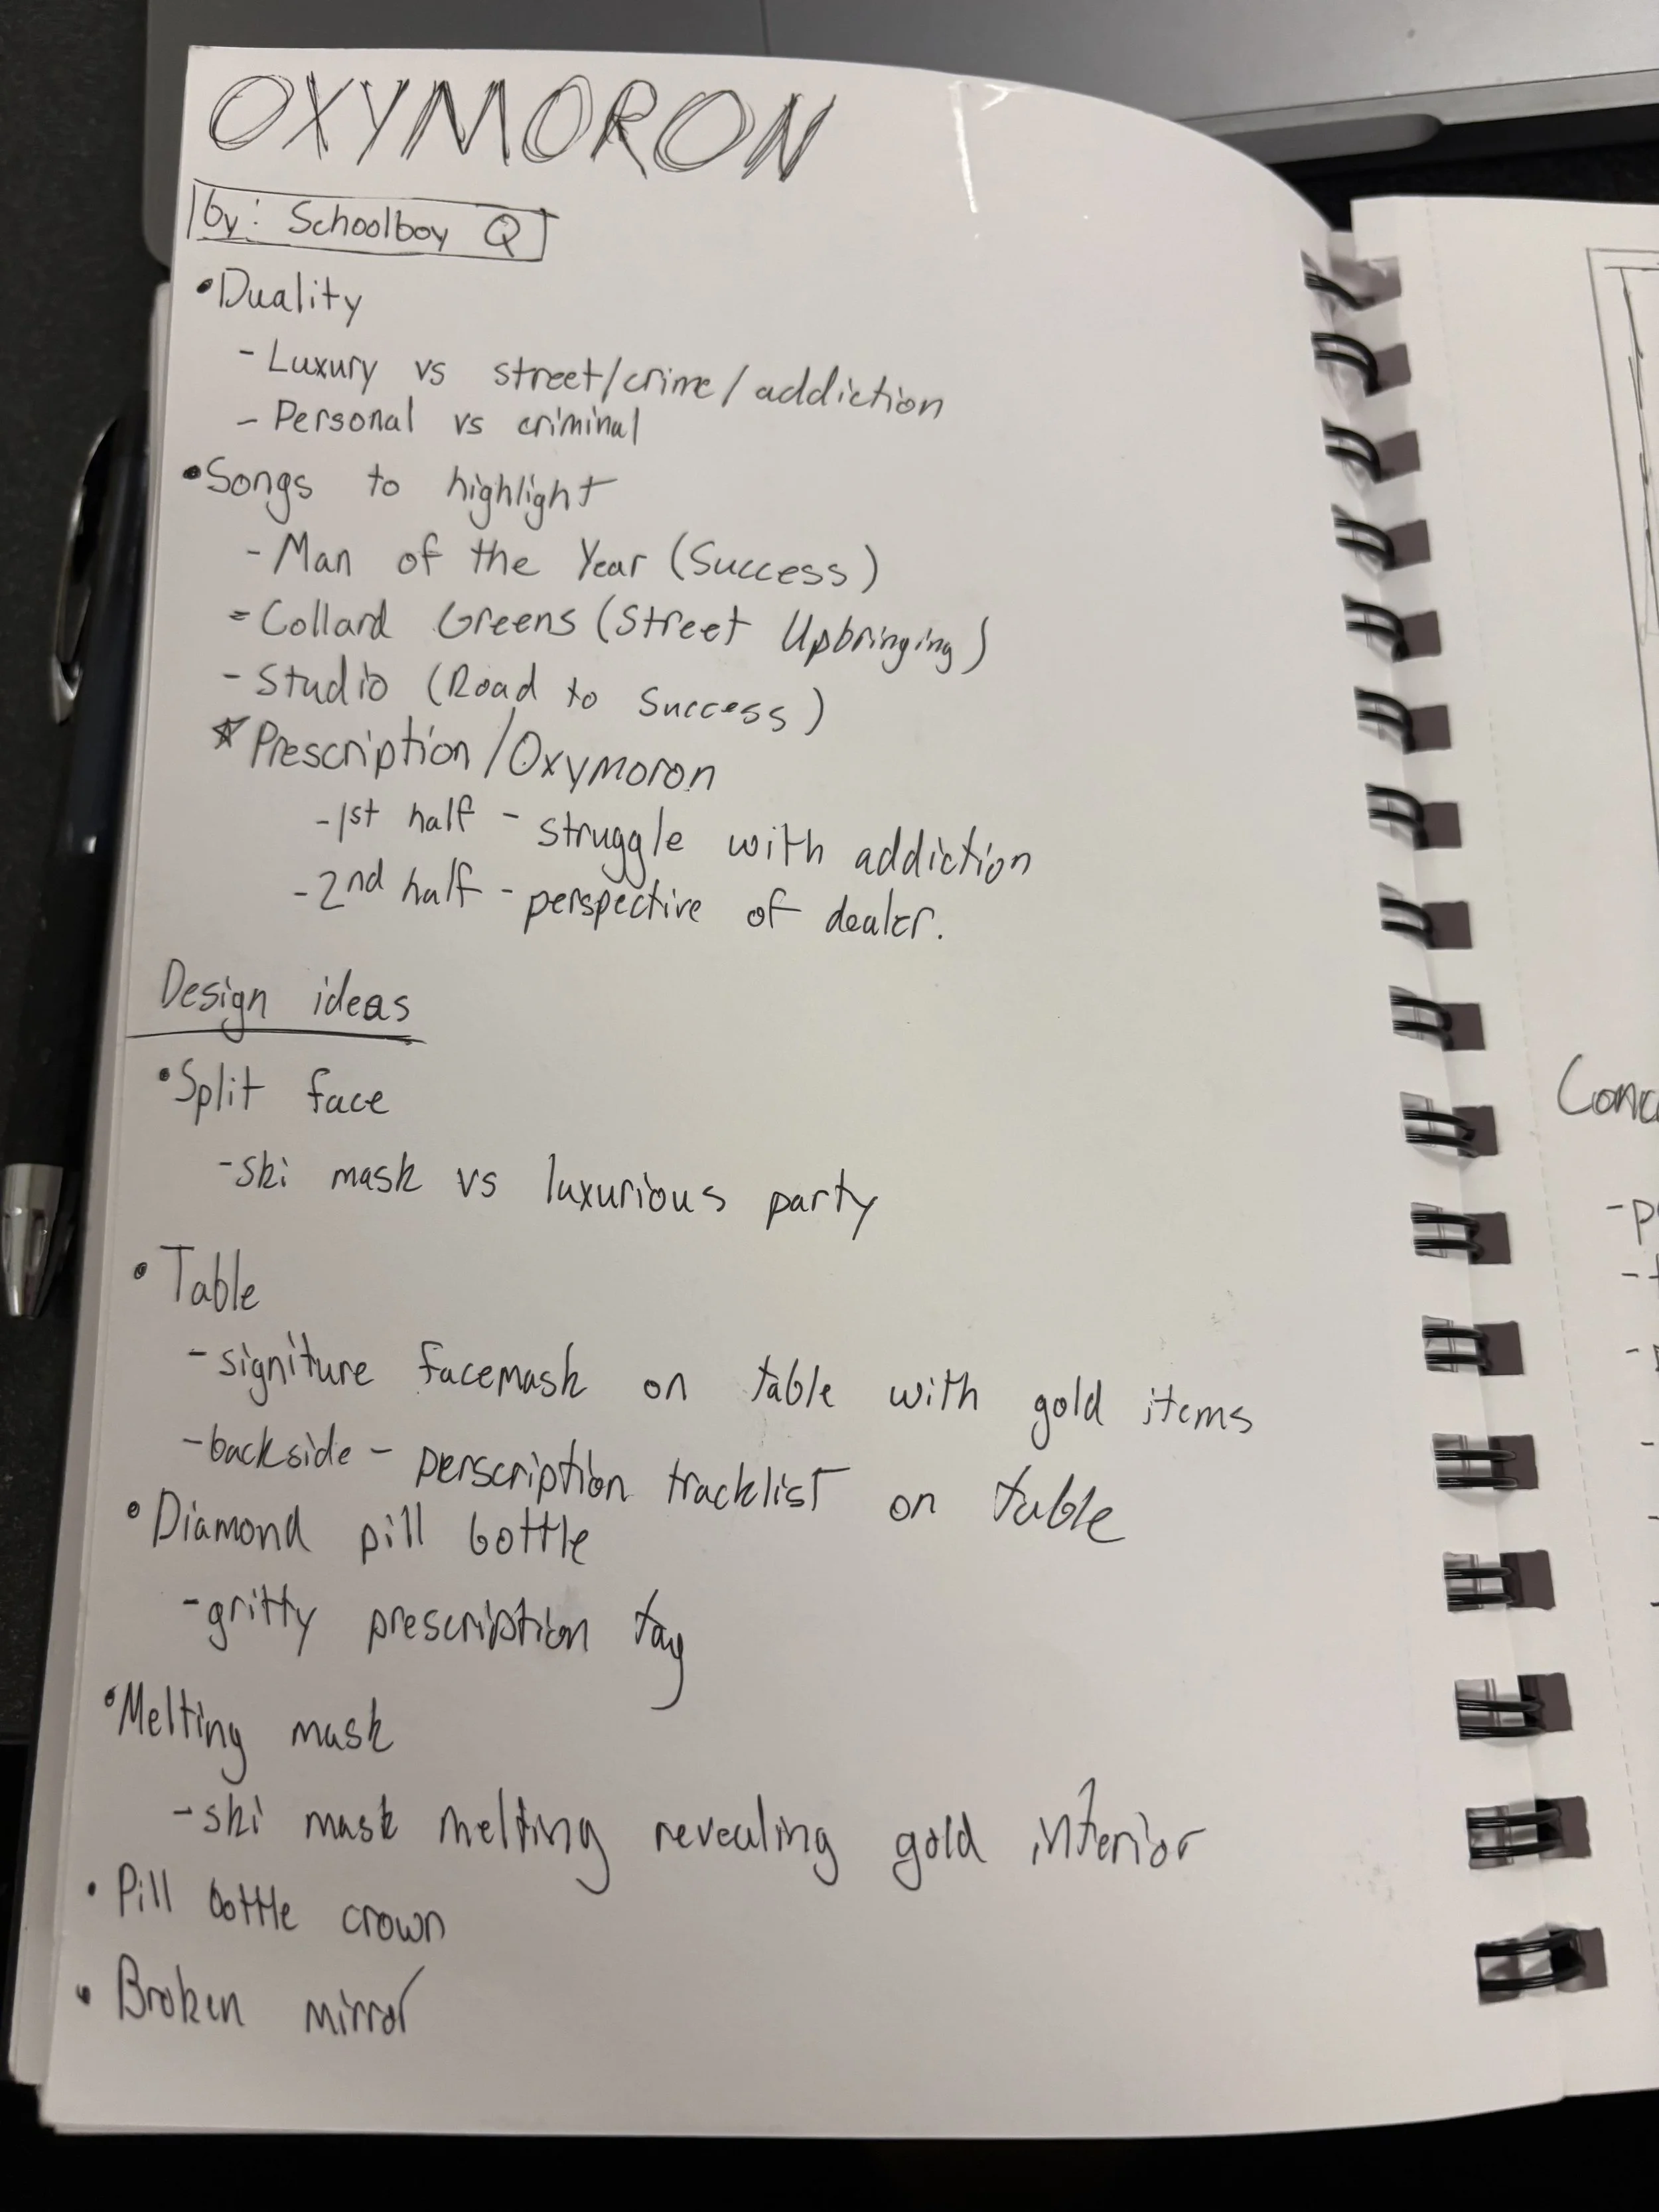 OXYMORON
by: Schoolboy Q
•Duality
- Luxury vs street/crime/addiction
- Personal vs criminal
•Songs to highlight
- Man of the Year (Success)
- Collard Greens (Street Upbringing)
- Studio (Road to Success)
☆ Prescription/Oxymoron
-1st half - struggle with addiction
-2nd half - perspective of dealer.
Design ideas
•Split face
-ski mask vs luxurious party
• Table
-signiture facemask on table with gold items
-backside - perscription tracklist on table
• Diamond pill bottle
-gritty prescription tag
•Melting mask
-ski mask melting revealing gold interior
• Pill bottle crown
• Broken mirror